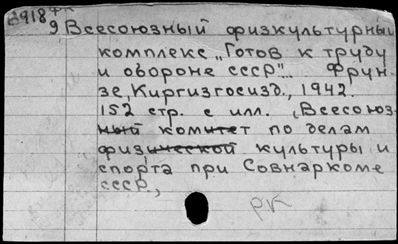 8918 фк
9 Всесоюзный физкультурный
комплекс „Готов к труду
и обороне СССР“. Фрун-
зе, Киргизгосизд., 1942.
152 стр. с илл. (Всесоюз-
ный комитет по делам
физической культуры и
спорта при Совнаркоме
СССР,
РК